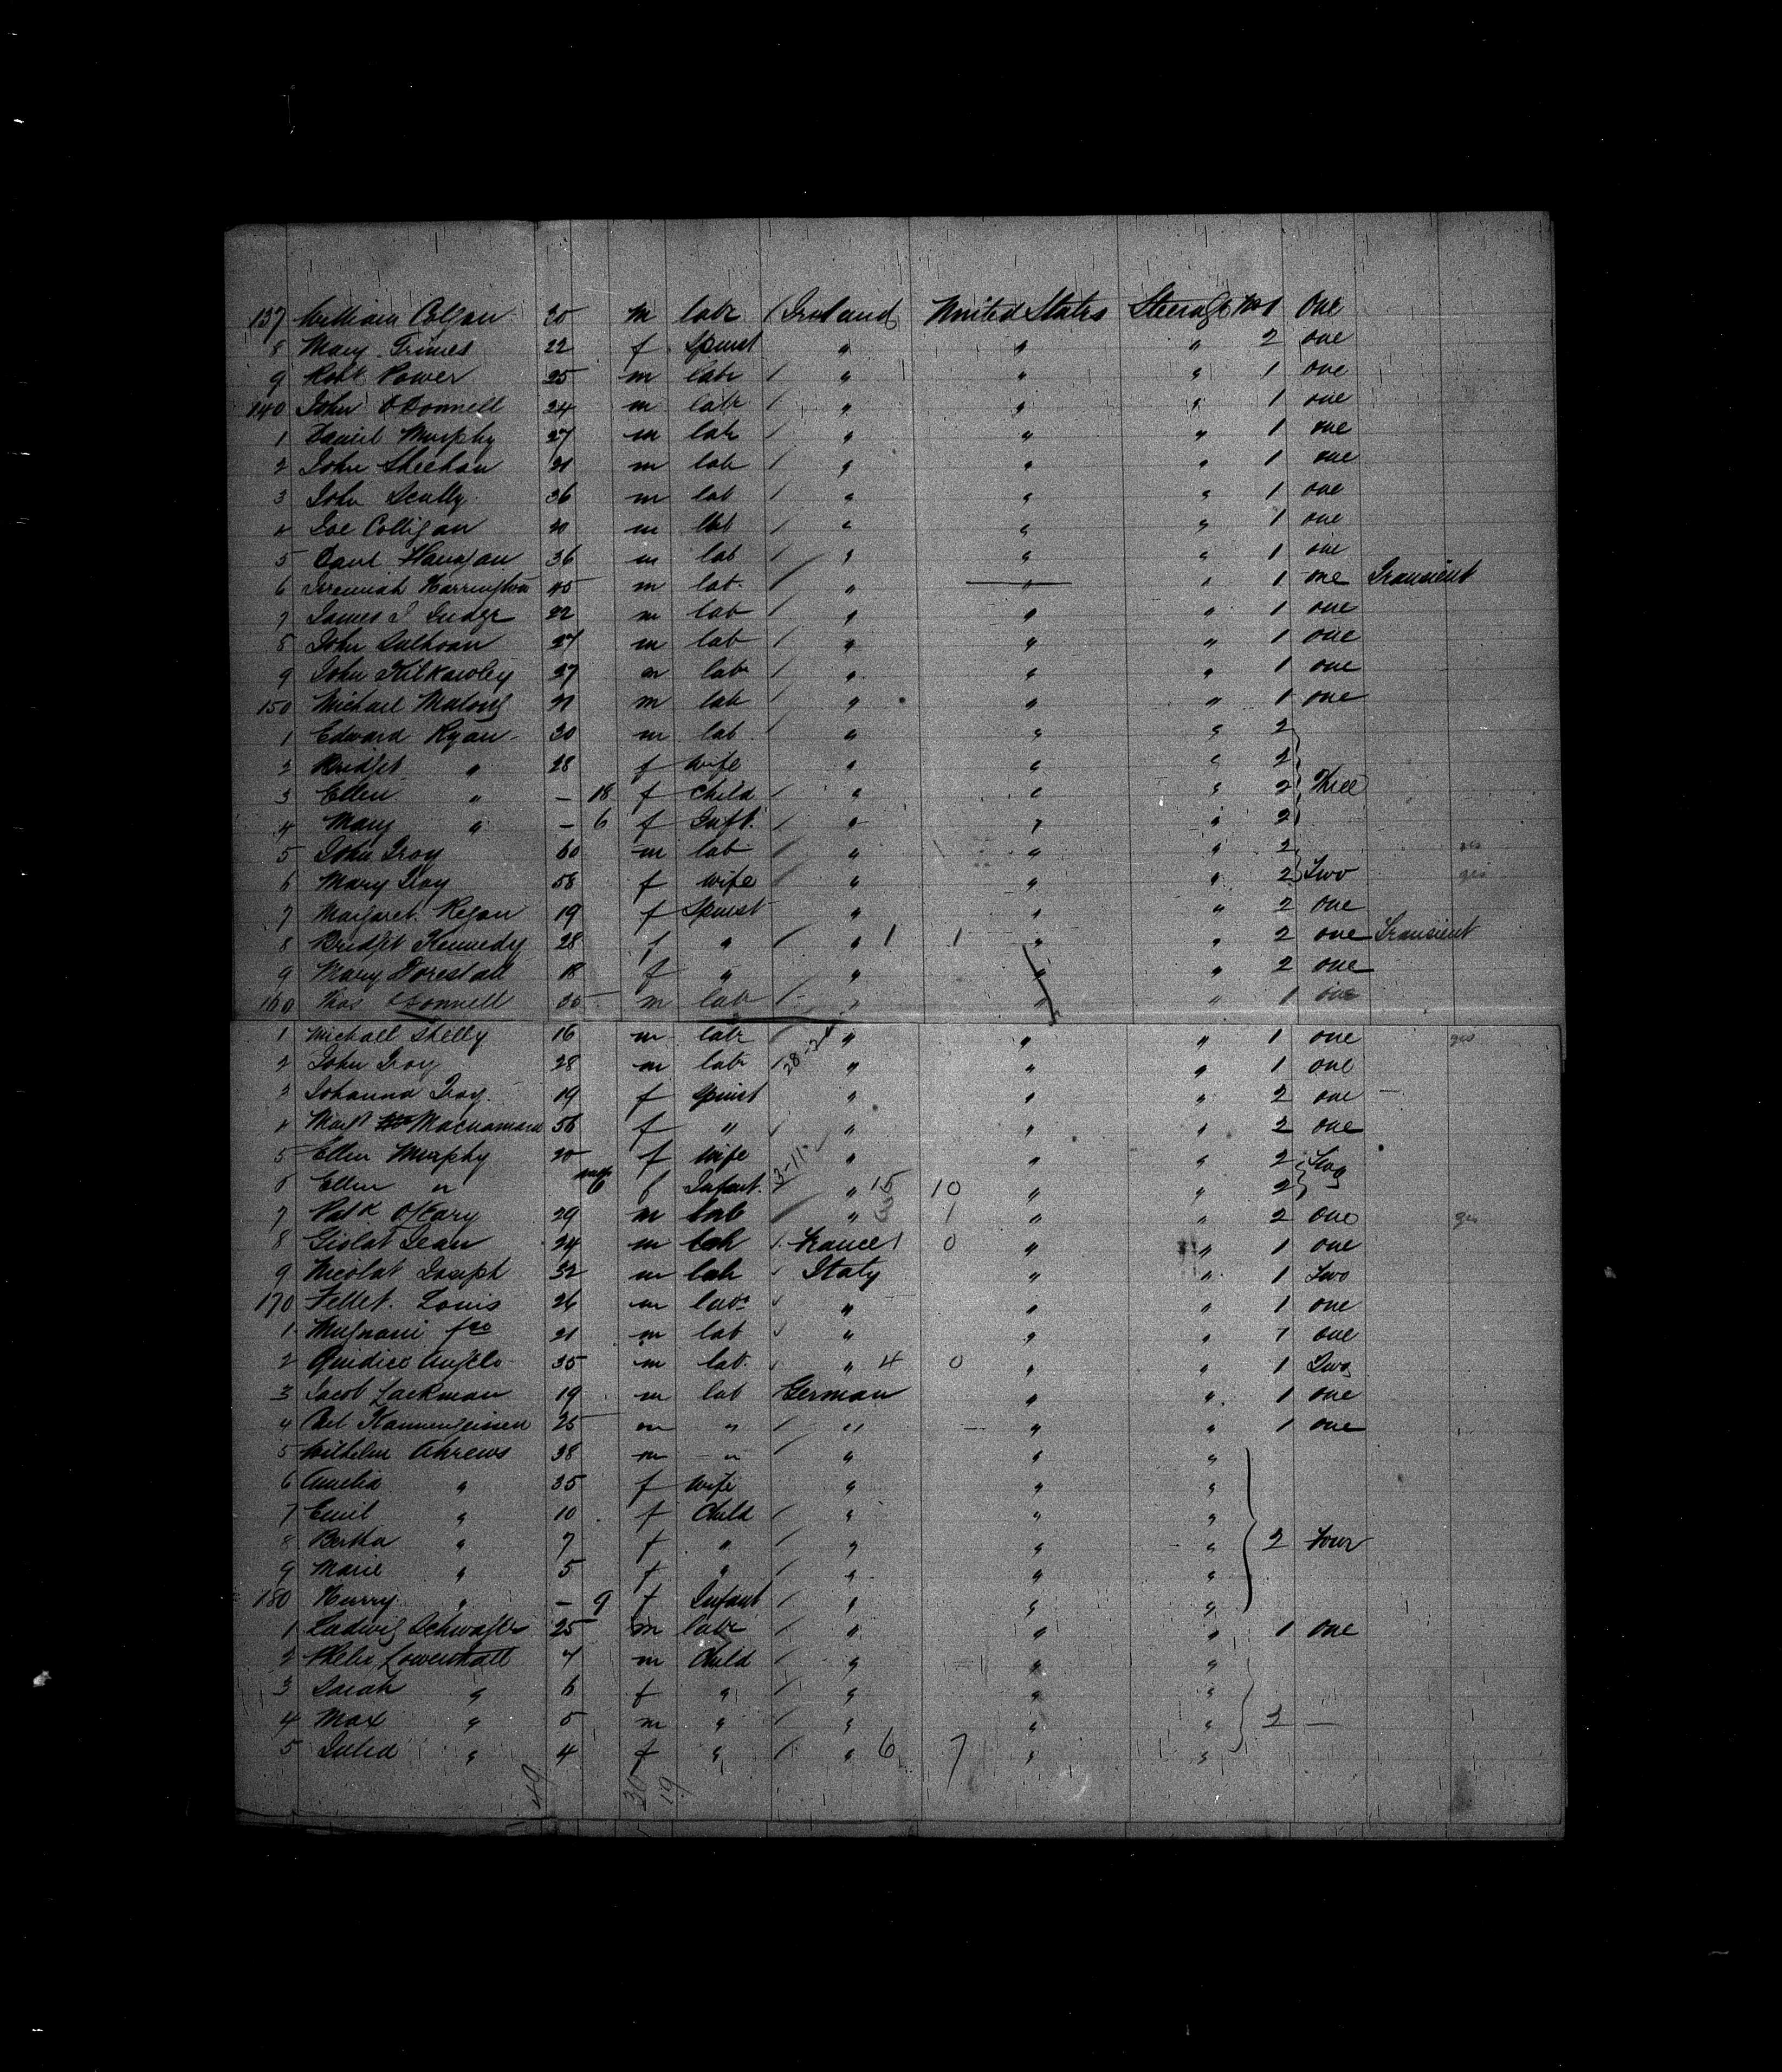 137 William Colgan 30 m labr / Ireland United States Steerage No 1 One
8 Mary Grimes 22 f Spinst " " " 2 one
9 Robt Power 25 m labr / " " " 1 one
140 John O'Donnell 24 m labr / " " " 1 one
1 Daniel Murphy 27 m labr / " " " 1 one
2 John Sheehan 21 m labr / " " " 1 one
3 John Scully 36 m lab / " " " 1 one
4 Joe Colligan m lab / " " " 1 one
5 Danl Flanagan 36 m lab / " " " 1 one
6 Jeremiah Harrington 45 m lab / " " " 1 one Transient
7 James 22 m lab / " " " 1 one
8 John Calhoan 27 m lab / " " " 1 one
9 John Kilkawley 27 m labr / " " " 1 one
150 Michael Malony 21 m lab / " " " 1 one
1 Edward Ryan 30 m lab / " " " 2
2 Bridget " 28 f wife " " " 2
3 Ellen " – 18 f child / " " " 2 Three
4 Mary " – 6 f Inft. / " " " 2
5 John Troy 60 m lab / " " " 2 yes
6 Mary Troy 58 f wife / " " " 2 Two yes
7 Margaret Regan 19 f Spinst " " " 2 one
8 Bridget Kennedy 28 f " / " 1 1 " " 2 one Transient
9 Mary Forestall 18 f " " " " 2 one
160 Thos O'Donnell 30 m lab / " " " 1 one
1 Michael Shelly 16 m labr / " " " 1 one yes
2 John Troy 28 m labr / 28-2 " " " 1 one
3 Johanna Troy 19 f spinst " " " 2 one –
4 Macnamara 56 f " / " " " 2 one
5 Ellen Murphy 20 f wife " " " 2
6 Ellen " 6 f Infant. 3-11 " 15 10 " " 2
7 Patk O'Gary 29 m lab / " 1 " " 2 one yes
8 Gislat Jean 24 m lab / France 1 0 " " 1 one
9 Nicolat Joseph 32 m lab / Italy " " 1 Two
170 Fellet. Louis 26 m labr / " " " 1 one
1 Mugnani fco 21 m lab / " " " 1 one
2 Giudice Angelo 35 m lab. / " 4 0 " " 1 Two
3 Jacob Lackman 19 m lab German " " 1 one
4 25 m " / " " " 1 one
5 Wilhelm Ahrens 38 m " / " " "
6 Amelia " 35 f wife " " "
7 Emil " 10 f Child / " " "
8 Bertha " 7 f " / " " " 2 Four
9 Marie " 5 f " / " " "
180 Harry " – 9 f Infant / " " "
1 Ludwig 25 m labr / " " " 1 one
2 7 m Child / " " "
3 Sarah " 6 f " / " " "
4 Max " 5 m " / " " " 2 —
5 Julia " 4 f " / " 6 7 " "
49 30 19